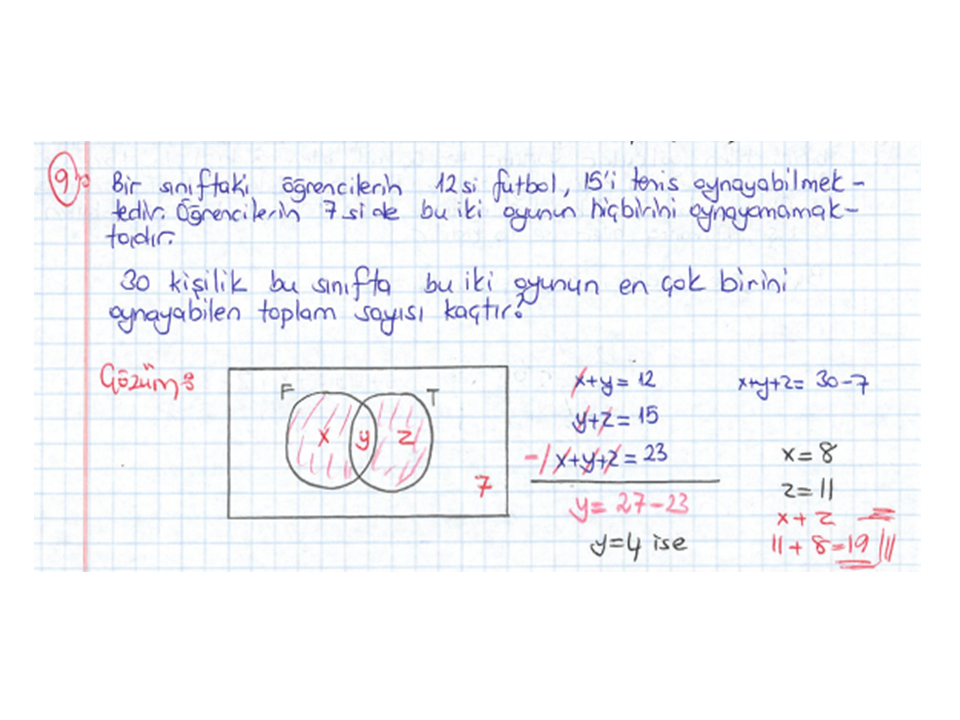 9)
Bir sınıftaki öğrencilerin 12 si futbol, 15'i tenis oynayabilmek-
tedir. Öğrencilerin 7 si de bu iki oyunun hiçbirini oynayamamak-
tadır.
30 kişilik bu sınıfta bu iki oyunun en çok birini
oynayabilen toplam sayısı kaçtır?
Çözüm:
F T
x y z
7
x+y = 12
y+z = 15
-1/ x+y+z = 23
y = 27-23
y=4 ise
x+y+z = 30-7
x = 8
z = 11
x + z =
11 + 8 = 19